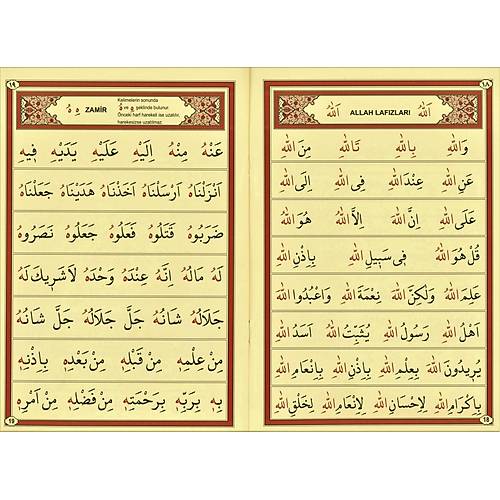 ١٨
اَللّٰهُ ALLAH LAFIZLARI اَللّٰهُ
وَاللّٰهِ بِاللّٰهِ تَاللّٰهِ مِنَ اللّٰهِ
عَنِ اللّٰهِ عِنْدَ اللّٰهِ فِى اللّٰهِ اِلَى اللّٰهِ
عَلَى اللّٰهِ اِنَّ اللّٰهَ اِلَّا اللّٰهُ هُوَ اللّٰهُ
قُلْ هُوَ اللّٰهُ فِى سَبِيلِ اللّٰهِ بِاِذْنِ اللّٰهِ
عَلِمَ اللّٰهُ وَلٰكِنَّ اللّٰهَ نِعْمَةَ اللّٰهِ وَاعْبُدُوا اللّٰهَ
اَهْلُ اللّٰهِ رَسُولُ اللّٰهِ يُثَبِّتُ اللّٰهُ اَسَدُ اللّٰهِ
يُرِيدُونَ اللّٰهَ بِعِلْمِ اللّٰهِ بِاِذْنِ اللّٰهِ بِاِنْعَامِ اللّٰهِ
بِاِكْرَامِ اللّٰهِ لِاِحْسَانِ اللّٰهِ لِاِنْعَامِ اللّٰهِ لِخَلْقِ اللّٰهِ
18
١٩
هُ هِ ZAMİR
Kelimelerin sonunda
هُ ve هِ şeklinde bulunur.
Önceki harf harekeli ise uzatılır,
harekesizse uzatılmaz.
عَنْهُ مِنْهُ اِلَيْهِ عَلَيْهِ يَدَيْهِ فِيهِ
اَنْزَلْنَاهُ اَرْسَلْنَاهُ اَخَذْنَاهُ هَدَيْنَاهُ جَعَلْنَاهُ
ضَرَبُوهُ قَتَلُوهُ فَعَلُوهُ جَعَلُوهُ نَصَرُوهُ
لَهُ مَالُهُ اِنَّهُ عِنْدَهُ وَحْدَهُ لَاشَرِيكَ لَهُ
جَلَالُهُ شَانُهُ جَلَّ جَلَالُهُ جَلَّ شَانُهُ
مِنْ عِلْمِهِ مِنْ قَبْلِهِ مِنْ بَعْدِهِ بِاِذْنِهِ
بِهِ بِرَبِّهِ بِرَحْمَتِهِ مِنْ فَضْلِهِ مِنْ اَمْرِهِ
19